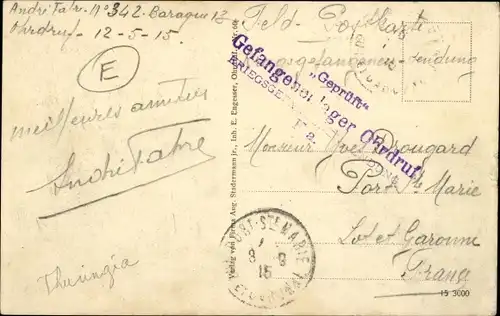 André Fabre. N° 342. Baraque 18
Ohrdruf - 12-5-15.
Feld - Postkarte
Kriegsgefangenen-Sendung
„Geprüft“
Gefangenenlager Ohrdruf
E
meilleures amitiés
André Fabre
Thuringia
Verlag von Firma Aug. Stadermann jr., Inh. E. Engesser, Ohrdruf.
Monsieur Yves Dougard
Port Ste Marie
Lot et Garonne
France
PORT-STE MARIE
8 - 8
15
LOT-ET-GARONNE
15 3000